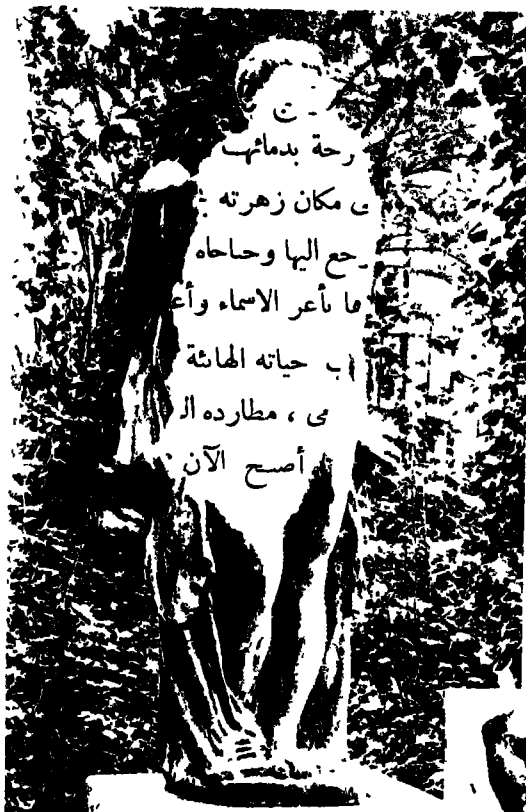 ت
رحة بدمائهـ
مكان زهرته
حع اليها وحاحاه
ها بأعر الاسماء وأعـ
حياته الهانئة
مى ، مطارده الـ
أصبح الآن